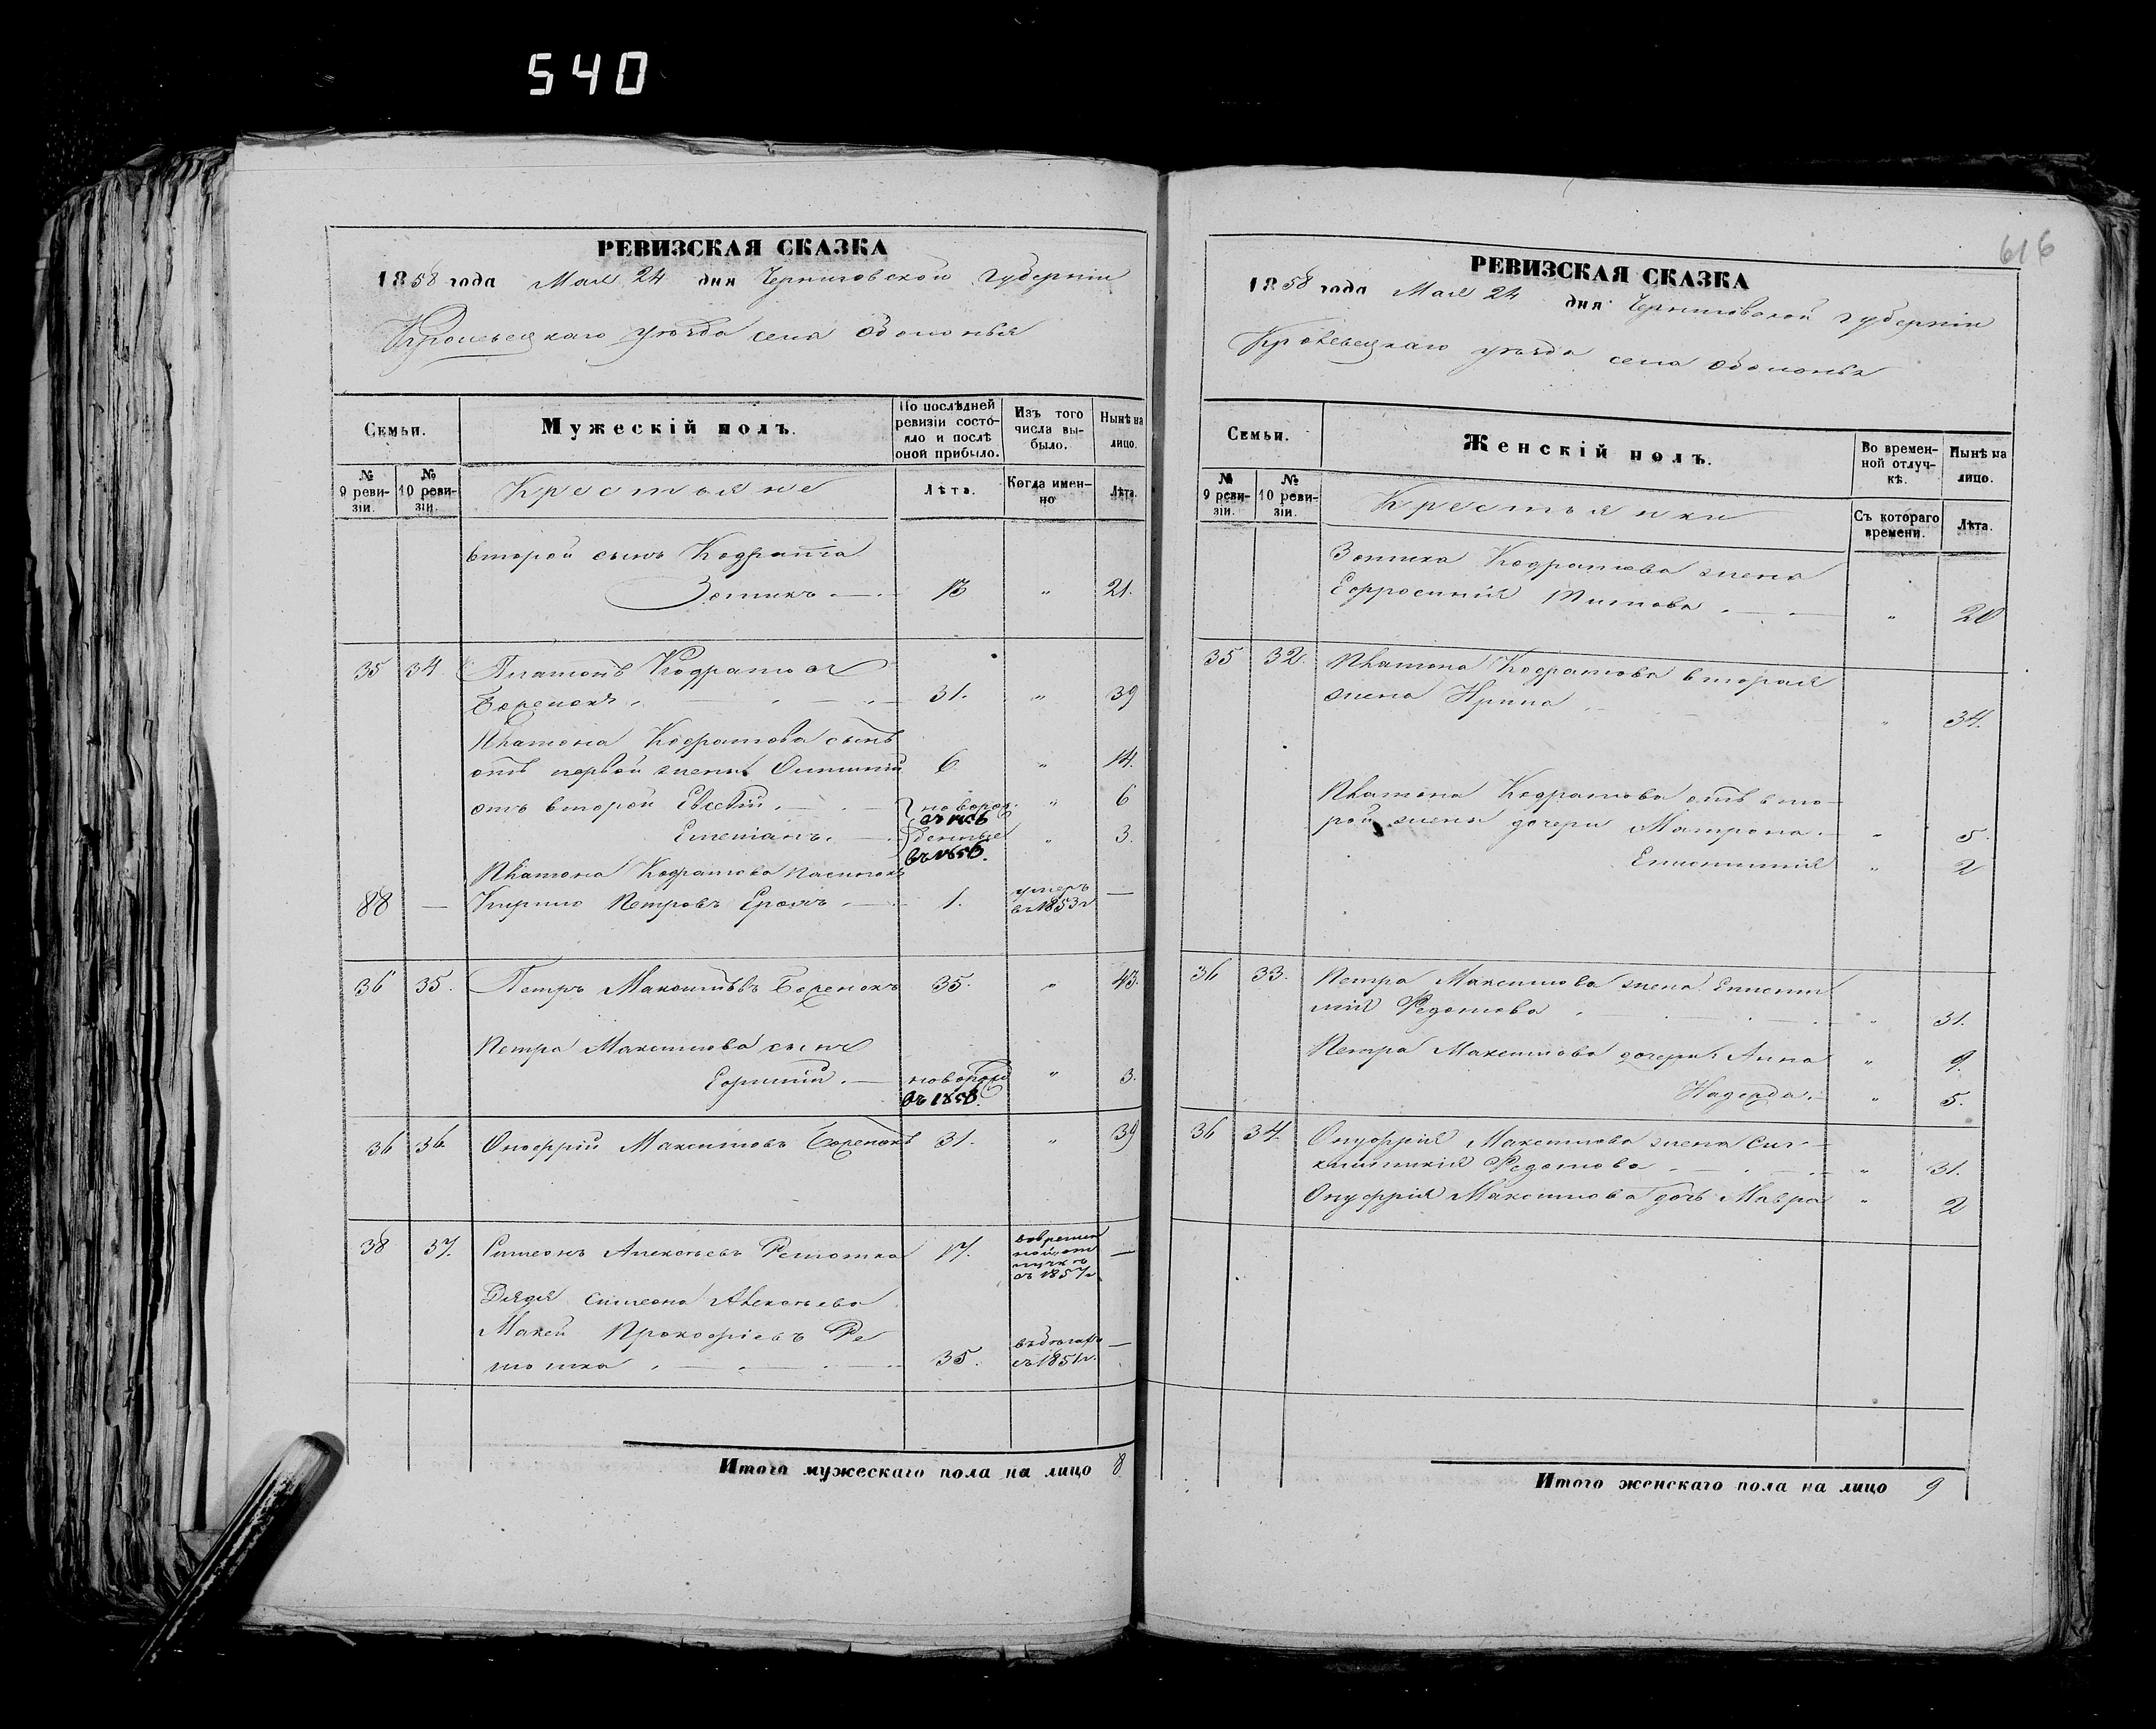 540
616
РЕВИЗСКАЯ СКАЗКА
1858 года Мая 24 дня Черниговской губернии
Кролевецкаго уезда села Оболонья
Семьи.
Мужескій полъ.
По послѣдней ревизіи состо-
яло и послѣ
оной прибыло.
Изъ того
числа вы-
было.
Нынѣ на
лицо.
№
9 реви-
зіи.
№
10 реви-
зіи.
Крестьяне
Лѣта.
Когда имен-
но
Лѣта.
второй сынъ Кодрата
Зотикъ 13 " 21.
35 34 Платонъ Кодратов
31. " 39
Платона Кодратова сынъ
отъ первой жены 6 " 14.
отъ второй Евсевій новорож " 6
Емелianъ денные " 3.
въ 1856.
Платона Кодратова пасынокъ
88 — Кирило Петровъ 1. умеръ —
въ 1853 г
36 35. Петръ Максимовъ Боренокъ 35. " 43.
Петра Максимова сынъ
новорожд " 3.
36 36 Онофрій Максимовъ Боренокъ 31. " 39
38 37. Симеонъ Алексѣевъ Решотка 17. во времен —
ной от
лучкѣ
съ 1857 г
Дядя Симеона Алексѣева
Мокей Прокофіевъ Ре
шотка 35. въ бѣгахъ —
съ 1851 г.
Итого мужескаго пола на лицо 8
РЕВИЗСКАЯ СКАЗКА
1858 года Мая 24 дня Черниговской губернии
Кролевецкаго уезда села Оболонья
Семьи.
Женскій полъ.
Во времен-
ной отлуч-
кѣ.
Нынѣ на
лицо.
№
9 реви-
зіи.
№
10 реви-
зіи.
Крестьянки
Съ котораго
времени.
Лѣта.
Зотика Кодратова жена
Ефросинія Титова " 20
35 32. Платона Кодратова вторая
жена Ирина " 34.
Платона Кодратова отъ вто-
рой жены дочери Матрона " 5.
Епистимия " 2
36 33. Петра Максимова жена Еписти
мия Федотова " 31.
Петра Максимова дочери Анна " 9.
Надежда " 5.
36 34. Онуфрія Максимова жена
Федотова " 31.
Онуфрія Максимова дочь Мавра " 2
Итого женскаго пола на лицо 9